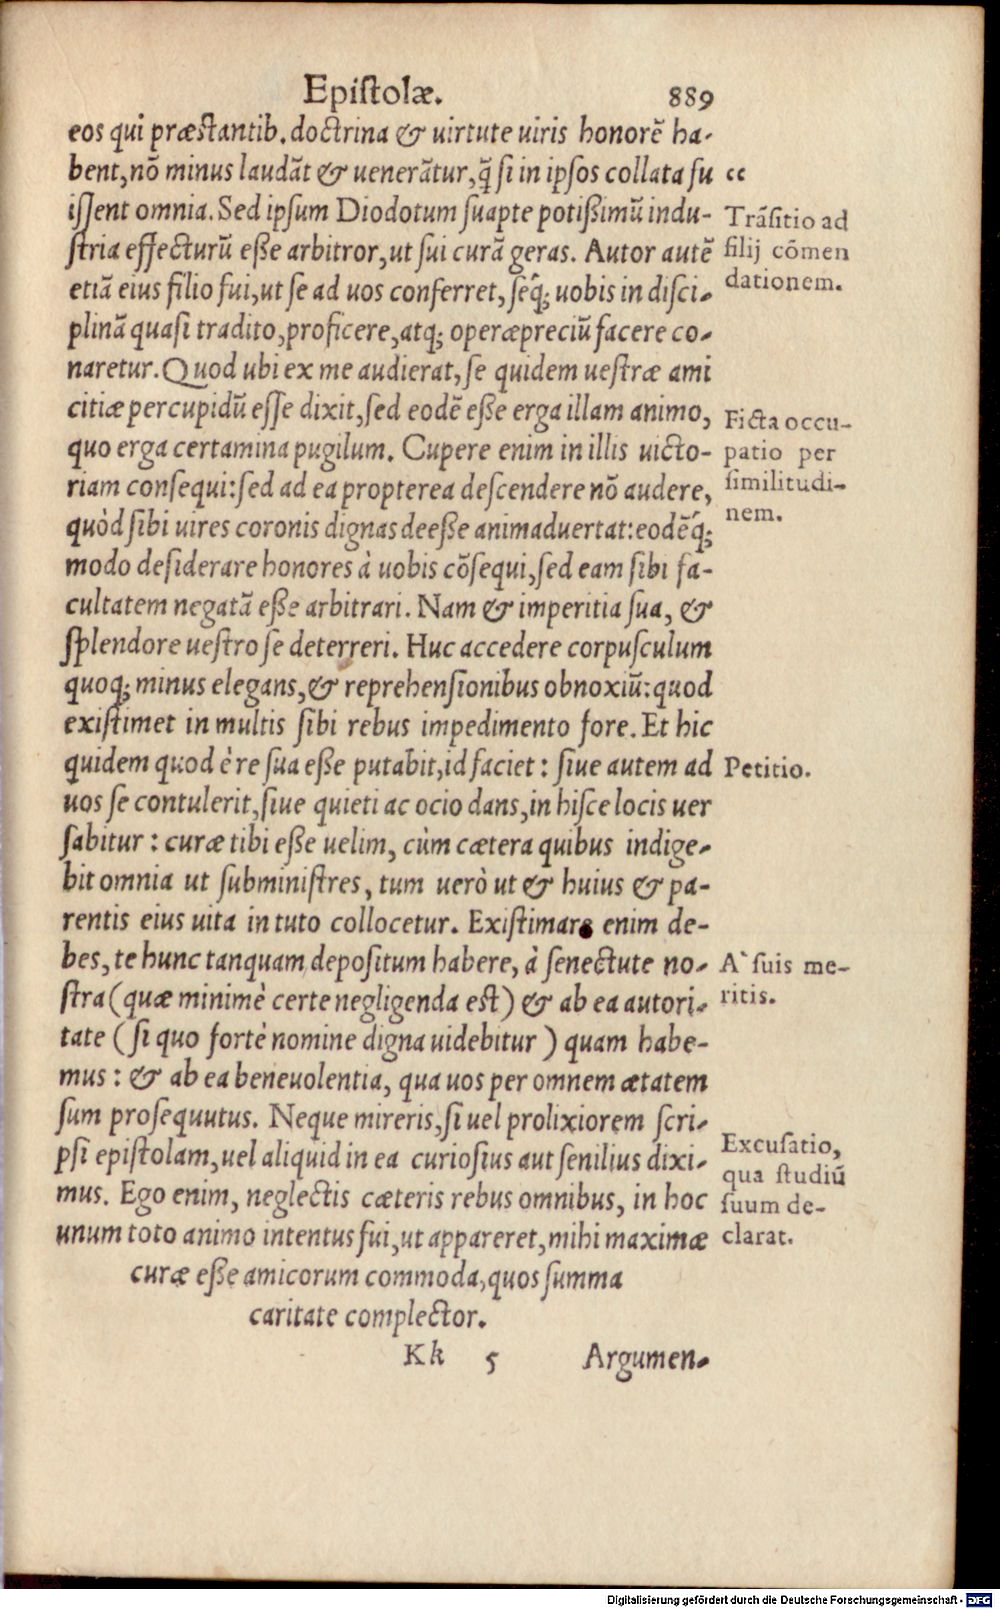 Epistolæ. 889
eos qui præstantib. doctrina & uirtute uiris honorē ha-
bent, nō minus laudāt & uenerātur, q̃ si in ipsos collata fu
issent omnia. Sed ipsum Diodotum suapte potißimū indu-
stria effecturū eße arbitror, ut sui curā geras. Autor autē
etiā eius filio fui, ut se ad uos conferret, seq́; uobis in disci-
plinā quasi tradito, proficere, atq; operæpreciū facere co-
naretur. Quod ubi ex me audierat, se quidem uestræ ami
citiæ percupidū esse dixit, sed eodē eße erga illam animo,
quo erga certamina pugilum. Cupere enim in illis uicto-
riam consequi: sed ad ea propterea descendere nō audere,
quòd sibi uires coronis dignas deeße animaduertat: eodēq́;
modo desiderare honores à uobis cōsequi, sed eam sibi fa-
cultatem negatā eße arbitrari. Nam & imperitia sua, &
splendore uestro se deterreri. Huc accedere corpusculum
quoq; minus elegans, & reprehensionibus obnoxiū: quod
existimet in multis sibi rebus impedimento fore. Et hic
quidem quod è re sua eße putabit, id faciet: siue autem ad
uos se contulerit, siue quieti ac ocio dans, in hisce locis uer
sabitur: curæ tibi eße uelim, cùm cætera quibus indige-
bit omnia ut subministres, tum uerò ut & huius & pa-
rentis eius uita in tuto collocetur. Existimare enim de-
bes, te hunc tanquam depositum habere, à senectute no-
stra (quæ minimè certe negligenda est) & ab ea autori-
tate (si quo fortè nomine digna uidebitur) quam habe-
mus: & ab ea beneuolentia, qua uos per omnem ætatem
sum prosequutus. Neque mireris, si uel prolixiorem scri-
psi epistolam, uel aliquid in ea curiosius aut senilius dixi-
mus. Ego enim, neglectis cæteris rebus omnibus, in hoc
unum toto animo intentus fui, ut appareret, mihi maximæ
curæ eße amicorum commoda, quos summa
caritate complector.
Kk 5 Argumen-
cc
Trāsitio ad
filij cōmen
dationem.
Ficta occu-
patio per
similitudi-
nem.
Petitio.
A` suis me-
ritis.
Excusatio,
qua studiū
suum de-
clarat.
Digitalisierung gefördert durch die Deutsche Forschungsgemeinschaft - DFG